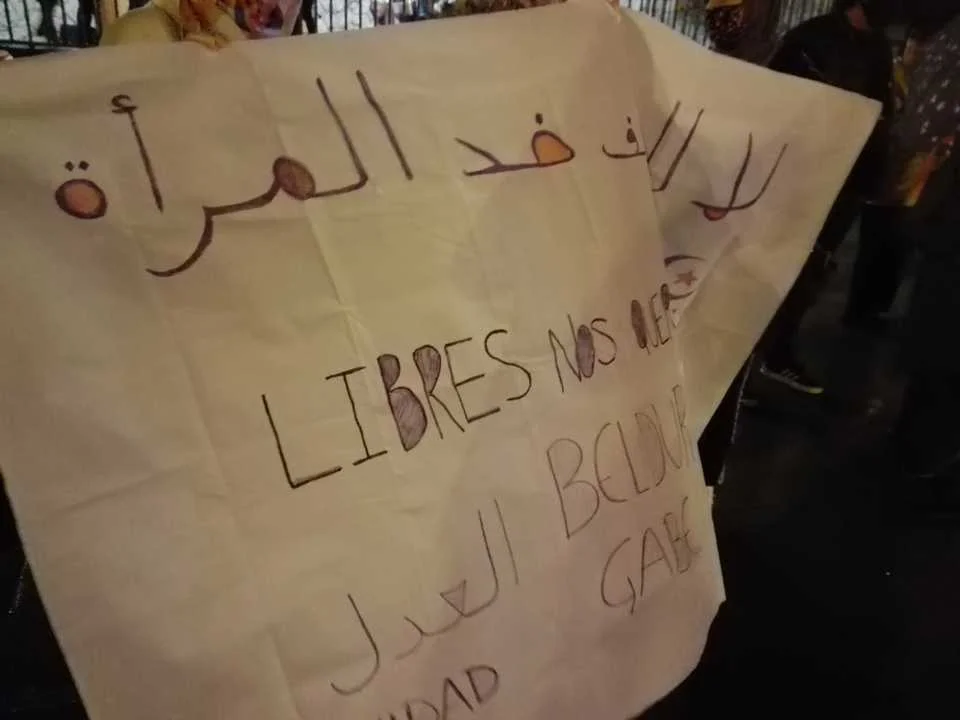 لا لل فد المرأة
LIBRES NOS QUER
BELDUR
GABE
العدل
IDAD